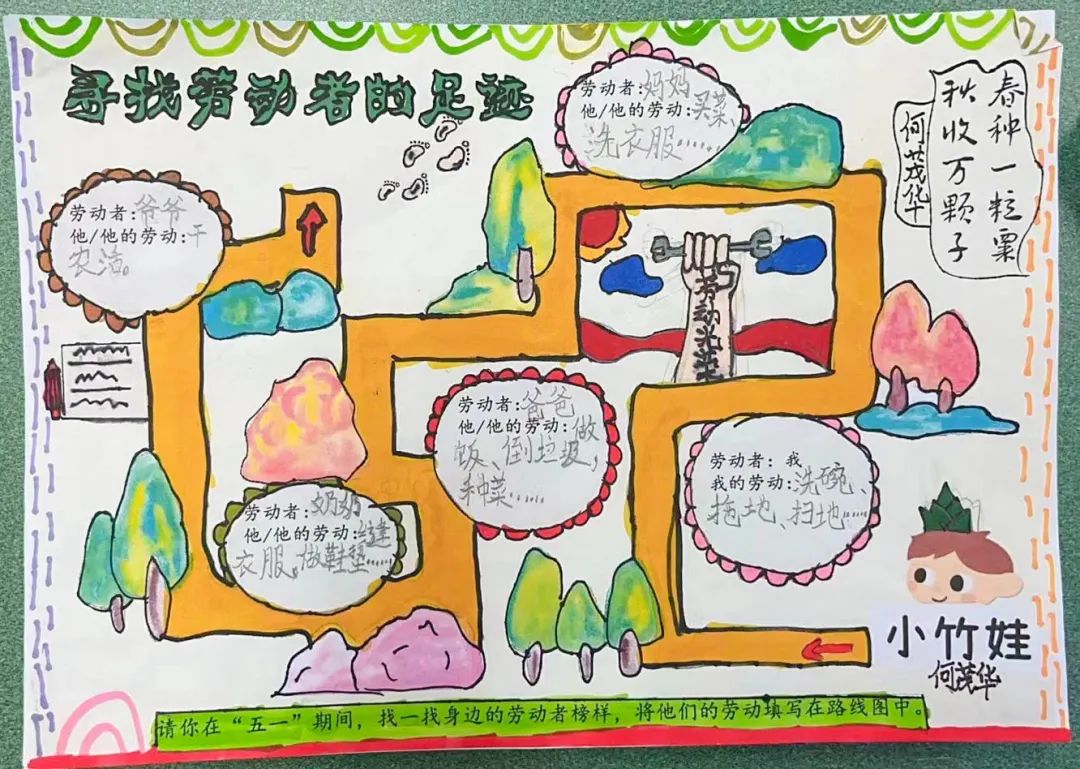 寻找劳动者的足迹
劳动者:妈妈
他/他的劳动:买菜、
洗衣服……
春种一粒粟
秋收万颗子
何茂华
劳动者:爷爷
他/他的劳动:干
农活。
劳动光荣
劳动者:爸爸
他/他的劳动:做
饭、倒垃圾,
种菜……
劳动者:我
我的劳动:洗碗、
拖地、扫地……
劳动者:奶奶
他/他的劳动:缝
衣服。做鞋垫……
小竹娃
何茂华
请你在“五一”期间,找一找身边的劳动者榜样,将他们的劳动填写在路线图中。